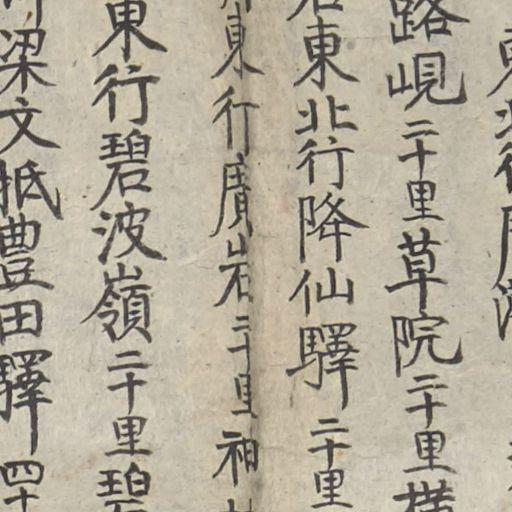 東北行
路峴二十里草院二十里橫
東北行降仙驛二十里
東行廣岩二十里神
東行碧波嶺二十里碧
梁文抵豊田驛四十